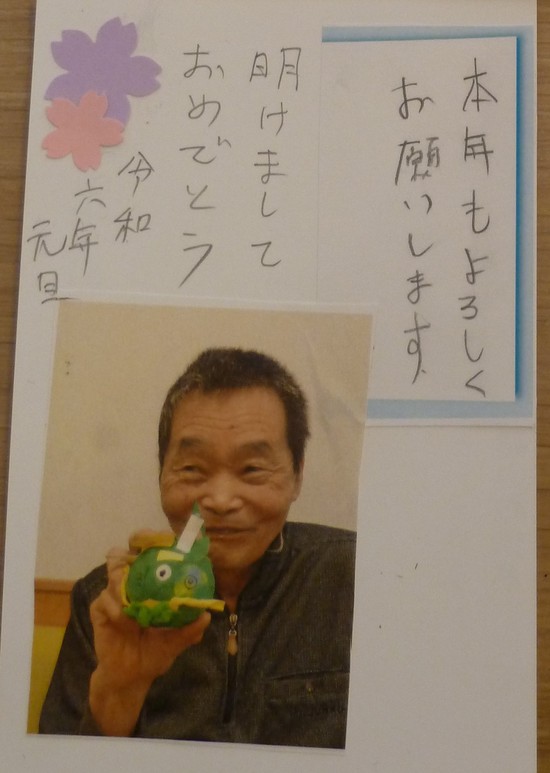 本年もよろしく
お願いします
明けまして
おめでとう
令和
六年
元旦